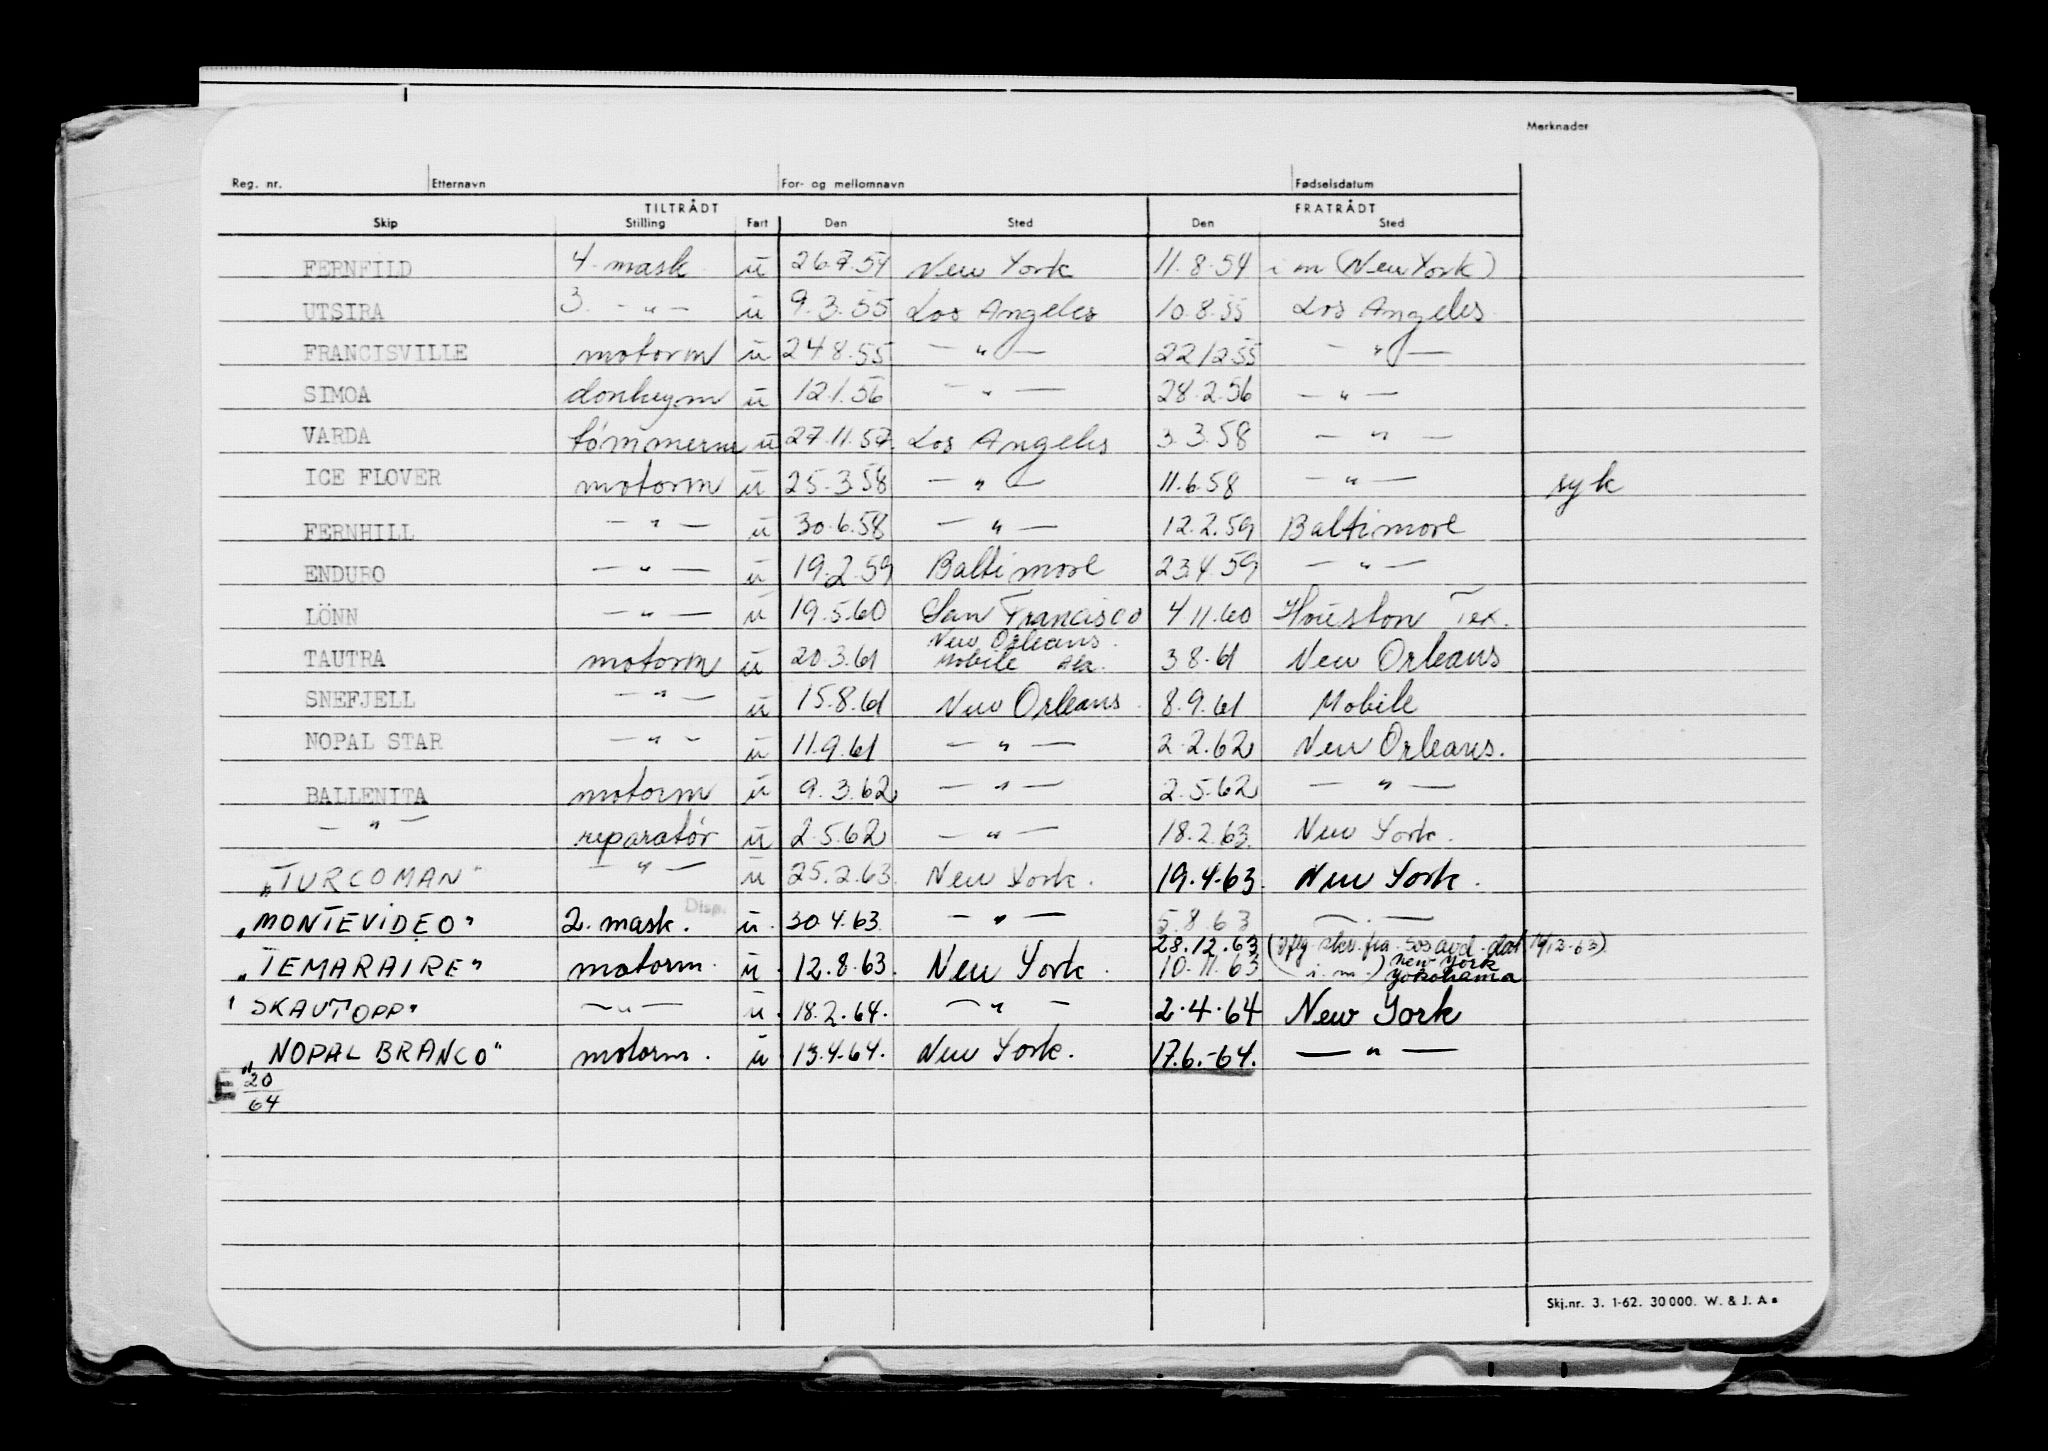 Merknader
Reg. nr. Etternavn For- og mellomnavn Fødselsdatum
TILTRÅDT FRATRÅDT
Skip Stilling Fart Den Sted Den Sted
FERNFILD 4. mask u 26.7.54 New York 11.8.54 i m (New York)
UTSIRA 3. — " — u 9.3.55 Los Angeles 10.8.55 Los Angeles
FRANCISVILLE motorm u 24 8.55 — " — 22/12 55 — " —
SIMOA donkeym u 12.1.56 — " — 28.2.56 — " —
VARDA tømmerm u 27.11.57. Los Angeles 3.3.58 — " —
ICE FLOVER motorm u 25.3.58 — " — 11.6.58 — " — syk
FERNHILL — " — u 30.6.58 — " — 12.2.59 Baltimore
ENDURO — " — u 19.2.59 Baltimore 23.4.59 — " —
LÖNN — " — u 19.5.60 San Francisco 4 11.60 Houston Tex.
New Orleans.
TAUTRA motorm u 20.3.61 Mobile Ala. 3.8.61 New Orleans
SNEFJELL — " — u 15.8.61 New Orleans. 8.9.61 Mobile
NOPAL STAR — " — u 11.9.61 — " — 2.2.62 New Orleans.
BALLENITA motorm u 9.3.62 — " — 2.5.62 — " —
— " — reparatør u 2.5.62 — " — 18.2.63. New York.
"TURCOMAN" — " — u 25.2.63. New York. 19.4.63. New York.
"MONTEVIDEO" 2. mask. Disp. u. 30.4.63. — " — 5.8.63 — " —
28.12.63 (iflg. skr. fra sosavd. dat 14/12-63)
New York
"TEMARAIRE" motorm. u. 12.8.63. New York. 10.11.63 (i.m.) Yokohama
"SKAUTOPP" — " — u. 18.2.64. — " — 2.4.64 New York
"NOPAL BRANCO" motorm. u. 13.4.64. New York. 17.6.-64. — " —
E 20/64
Skj.nr. 3. 1-62. 30 000. W. & J. A s